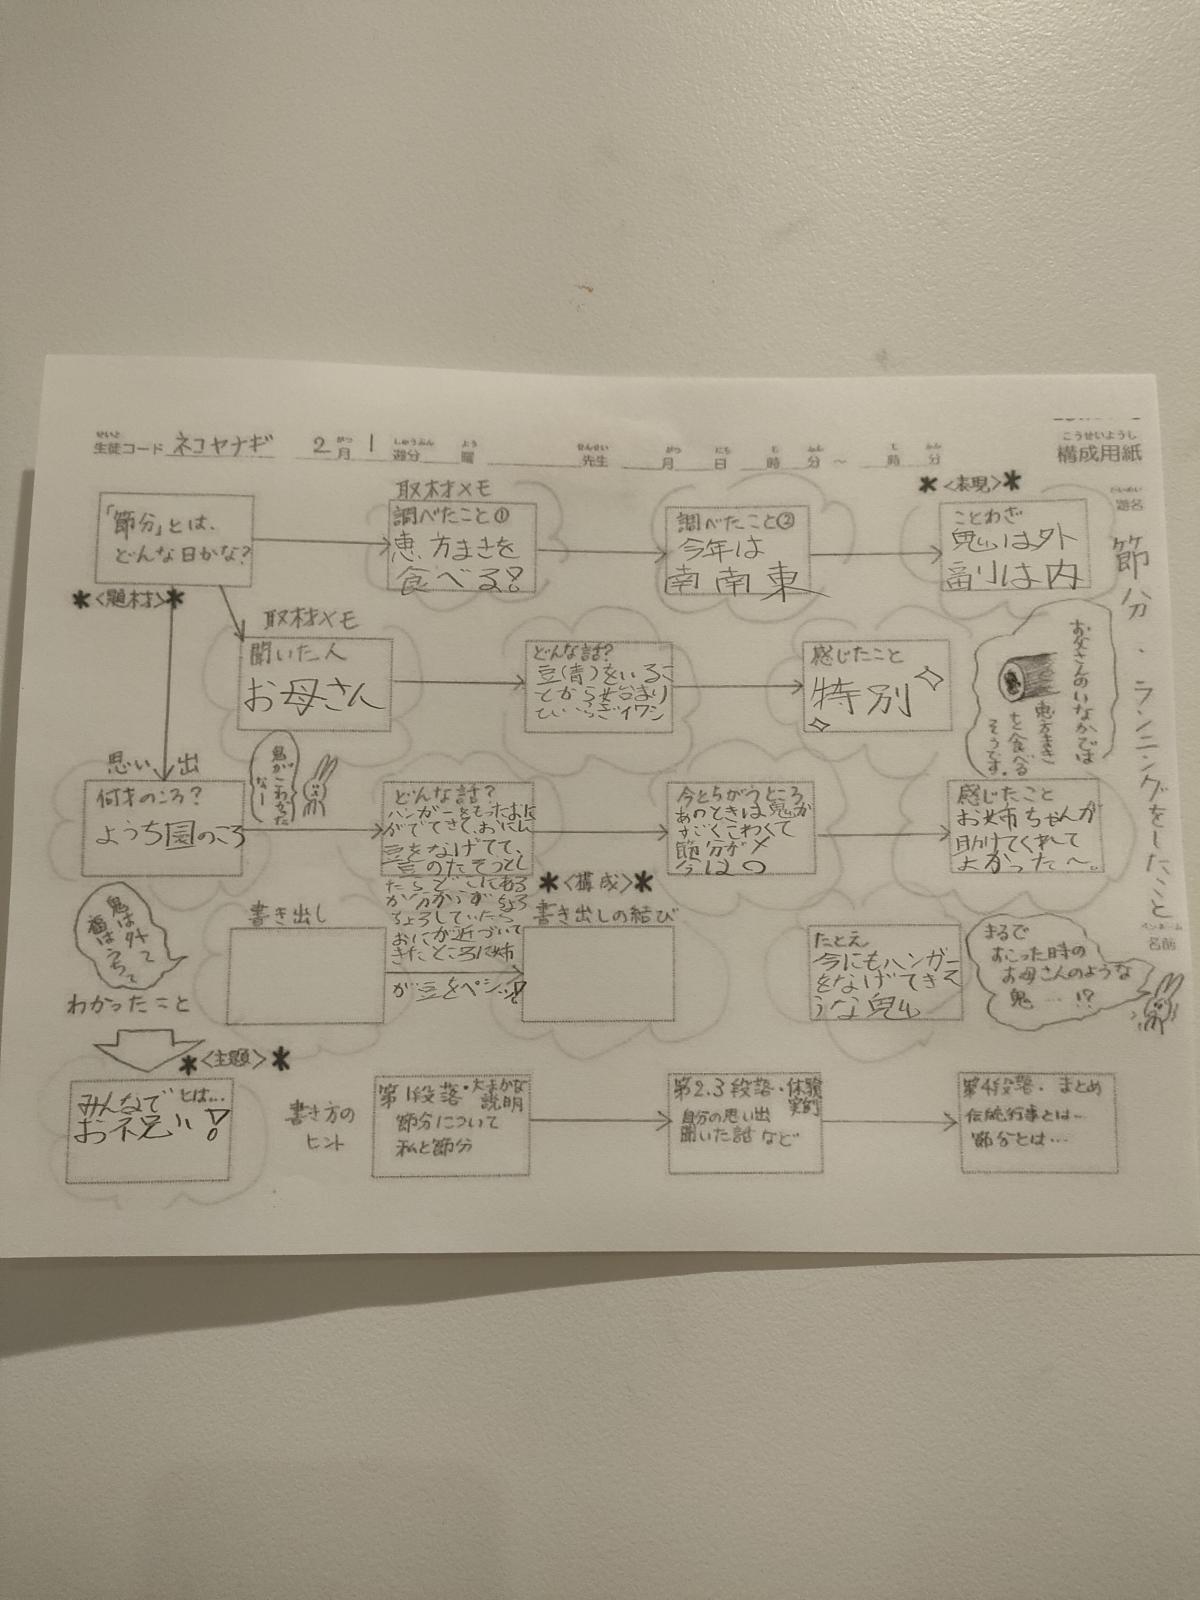 こうせいようし
構成用紙
せいと
生徒コード ネコヤナギ 2月 1週分 曜 先生 月 日 時 分～ 時 分
題名
節分・ランニングをしたこと
ペンネーム
名前
「節分」とは、
どんな日かな?
＊<題材>＊
取材メモ
調べたこと①
恵方まきを
食べる!
調べたこと②
今年は
南南東
＊<表現>＊
ことわざ
鬼は外
副は内
取材メモ
聞いた人
お母さん
どんな話?
豆(青)をいるこ
とから始まり
ひいらぎイワシ
感じたこと
特別
お父さんのいなかでは
恵方まき
を食べる
そうです。
思い出
何才のころ?
ようち園のころ
鬼がこわかった
なー
どんな話?
ハンガーをもったおに
がでてきて、おにに
豆をなげてて、
豆のたそうとし
たらどこにある
か分からずちょろ
ちょろしていたら
おにが近づいて
きたところに姉
が豆をペシッ!
今とちがうところ
あのときは鬼が
すごくこわくて
節分が✕
今は〇
感じたこと
お姉ちゃんが
助けてくれて
よかった〜。
鬼は外って
福はうちって
書き出し
＊<構成>＊
書き出しの結び
たとえ
今にもハンガー
をなげてきそ
うな鬼
まるで
おこった時の
お母さんのような
鬼…!?
わかったこと
＊<主題>＊
みんなで とは…
お祝い!
書き方の
ヒント
第1段落・大まかな
説明
節分について
私と節分
第2.3段落・体験
実例
自分の思い出
聞いた話など
第4段落・まとめ
伝統行事とは…
節分とは…